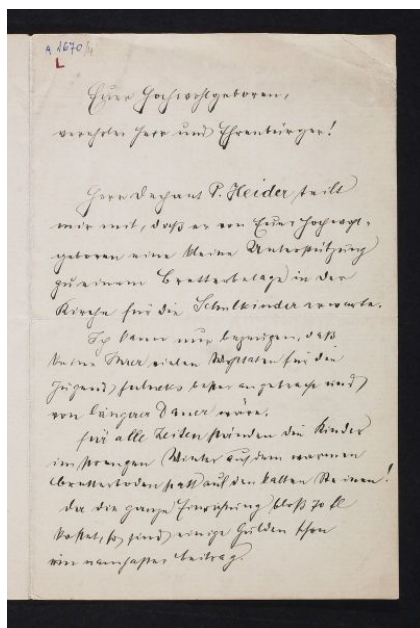 A 2670/4
L
Euer Hochwohlgeboren,
verehrter Herr und Ehrenbürger!
Herr Dechant P. Heider teilt
mir mit, daß er von Euer Hochwohl-
geboren eine kleine Unterstützung
zu einem Bretterbelage in der
Kirche für die Schulkinder erwarte.
Ich kann nur bezeugen, daß
keine Ihrer vielen Wohltaten für die
Jugend Fulneks besser angebracht und
von längerer Dauer wäre.
Für alle Zeiten ständen die Kinder
im strengen Winter auf dem warmen
Bretterboden statt auf den kalten Steinen!
Da die ganze Einrichtung bloß 70 fl
kostet, so sind einige Gulden schon
ein namhafter Beitrag.